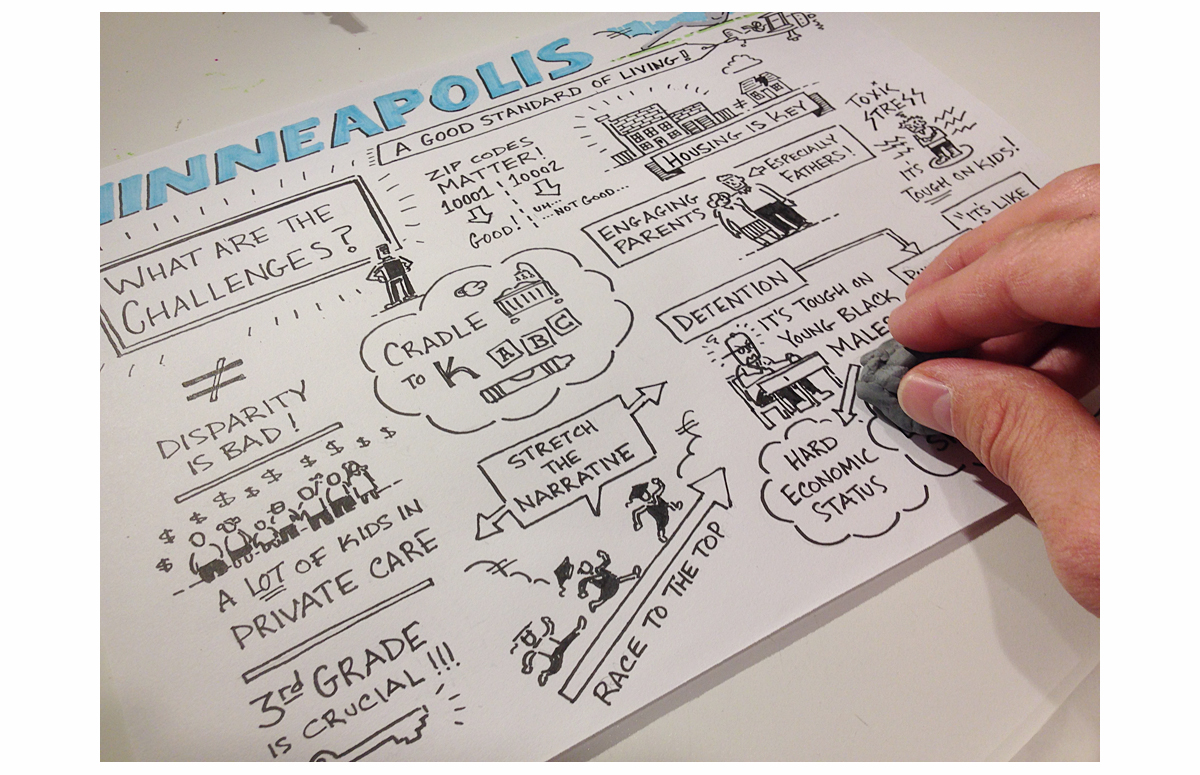 MINNEAPOLIS
A GOOD STANDARD OF LIVING!
WHAT ARE THE
CHALLENGES?
ZIP CODES
MATTER!
10001 10002
GOOD!
UH...
...NOT GOOD...
≠
HOUSING IS KEY
TOXIC
STRESS
IT'S
TOUGH ON KIDS!
ENGAGING
PARENTS
ESPECIALLY
FATHERS!
"IT'S LIKE
DETENTION
IT'S TOUGH ON
YOUNG BLACK
MALES
HARD
ECONOMIC
STATUS
CRADLE
TO K ABC
≠
DISPARITY
IS BAD!
$ $ $ $ $ $ $ $ $
A LOT OF KIDS IN
PRIVATE CARE
3rd GRADE
IS CRUCIAL!!!
STRETCH
THE
NARRATIVE
RACE TO THE TOP